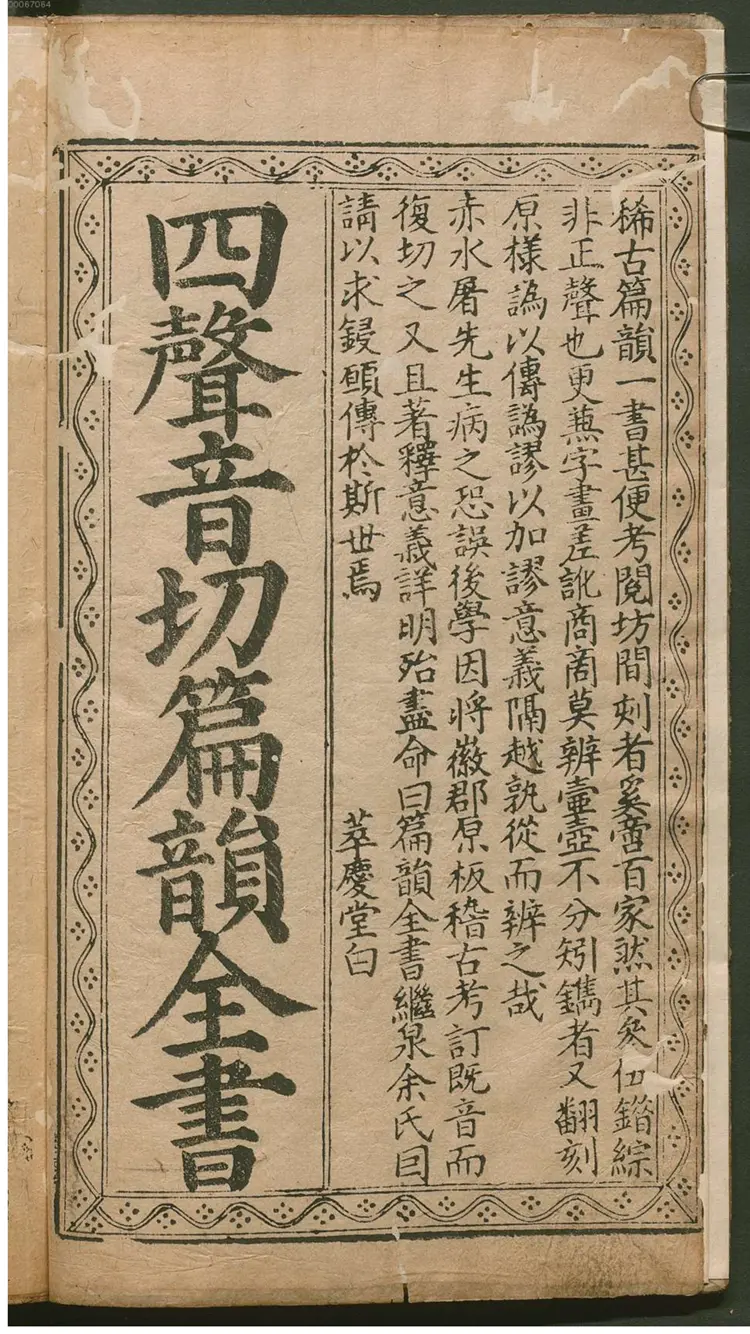 稀古篇韻一書甚便考閱坊間刻者奚啻百家然其參伍錯綜
非正聲也更無字畫差訛商啇莫辨壷壼不分矧鐫者又翻刻
原樣譌以傳譌謬以加謬意義隔越孰從而辨之哉
赤水屠先生病之恐誤後學因將徽郡原板稽古考訂既音而
復切之又且著釋意義詳明殆盡命曰篇韻全書繼泉余氏囙
請以求鋟願傳於斯世焉
萃慶堂白
四聲音切篇韻全書
00067064